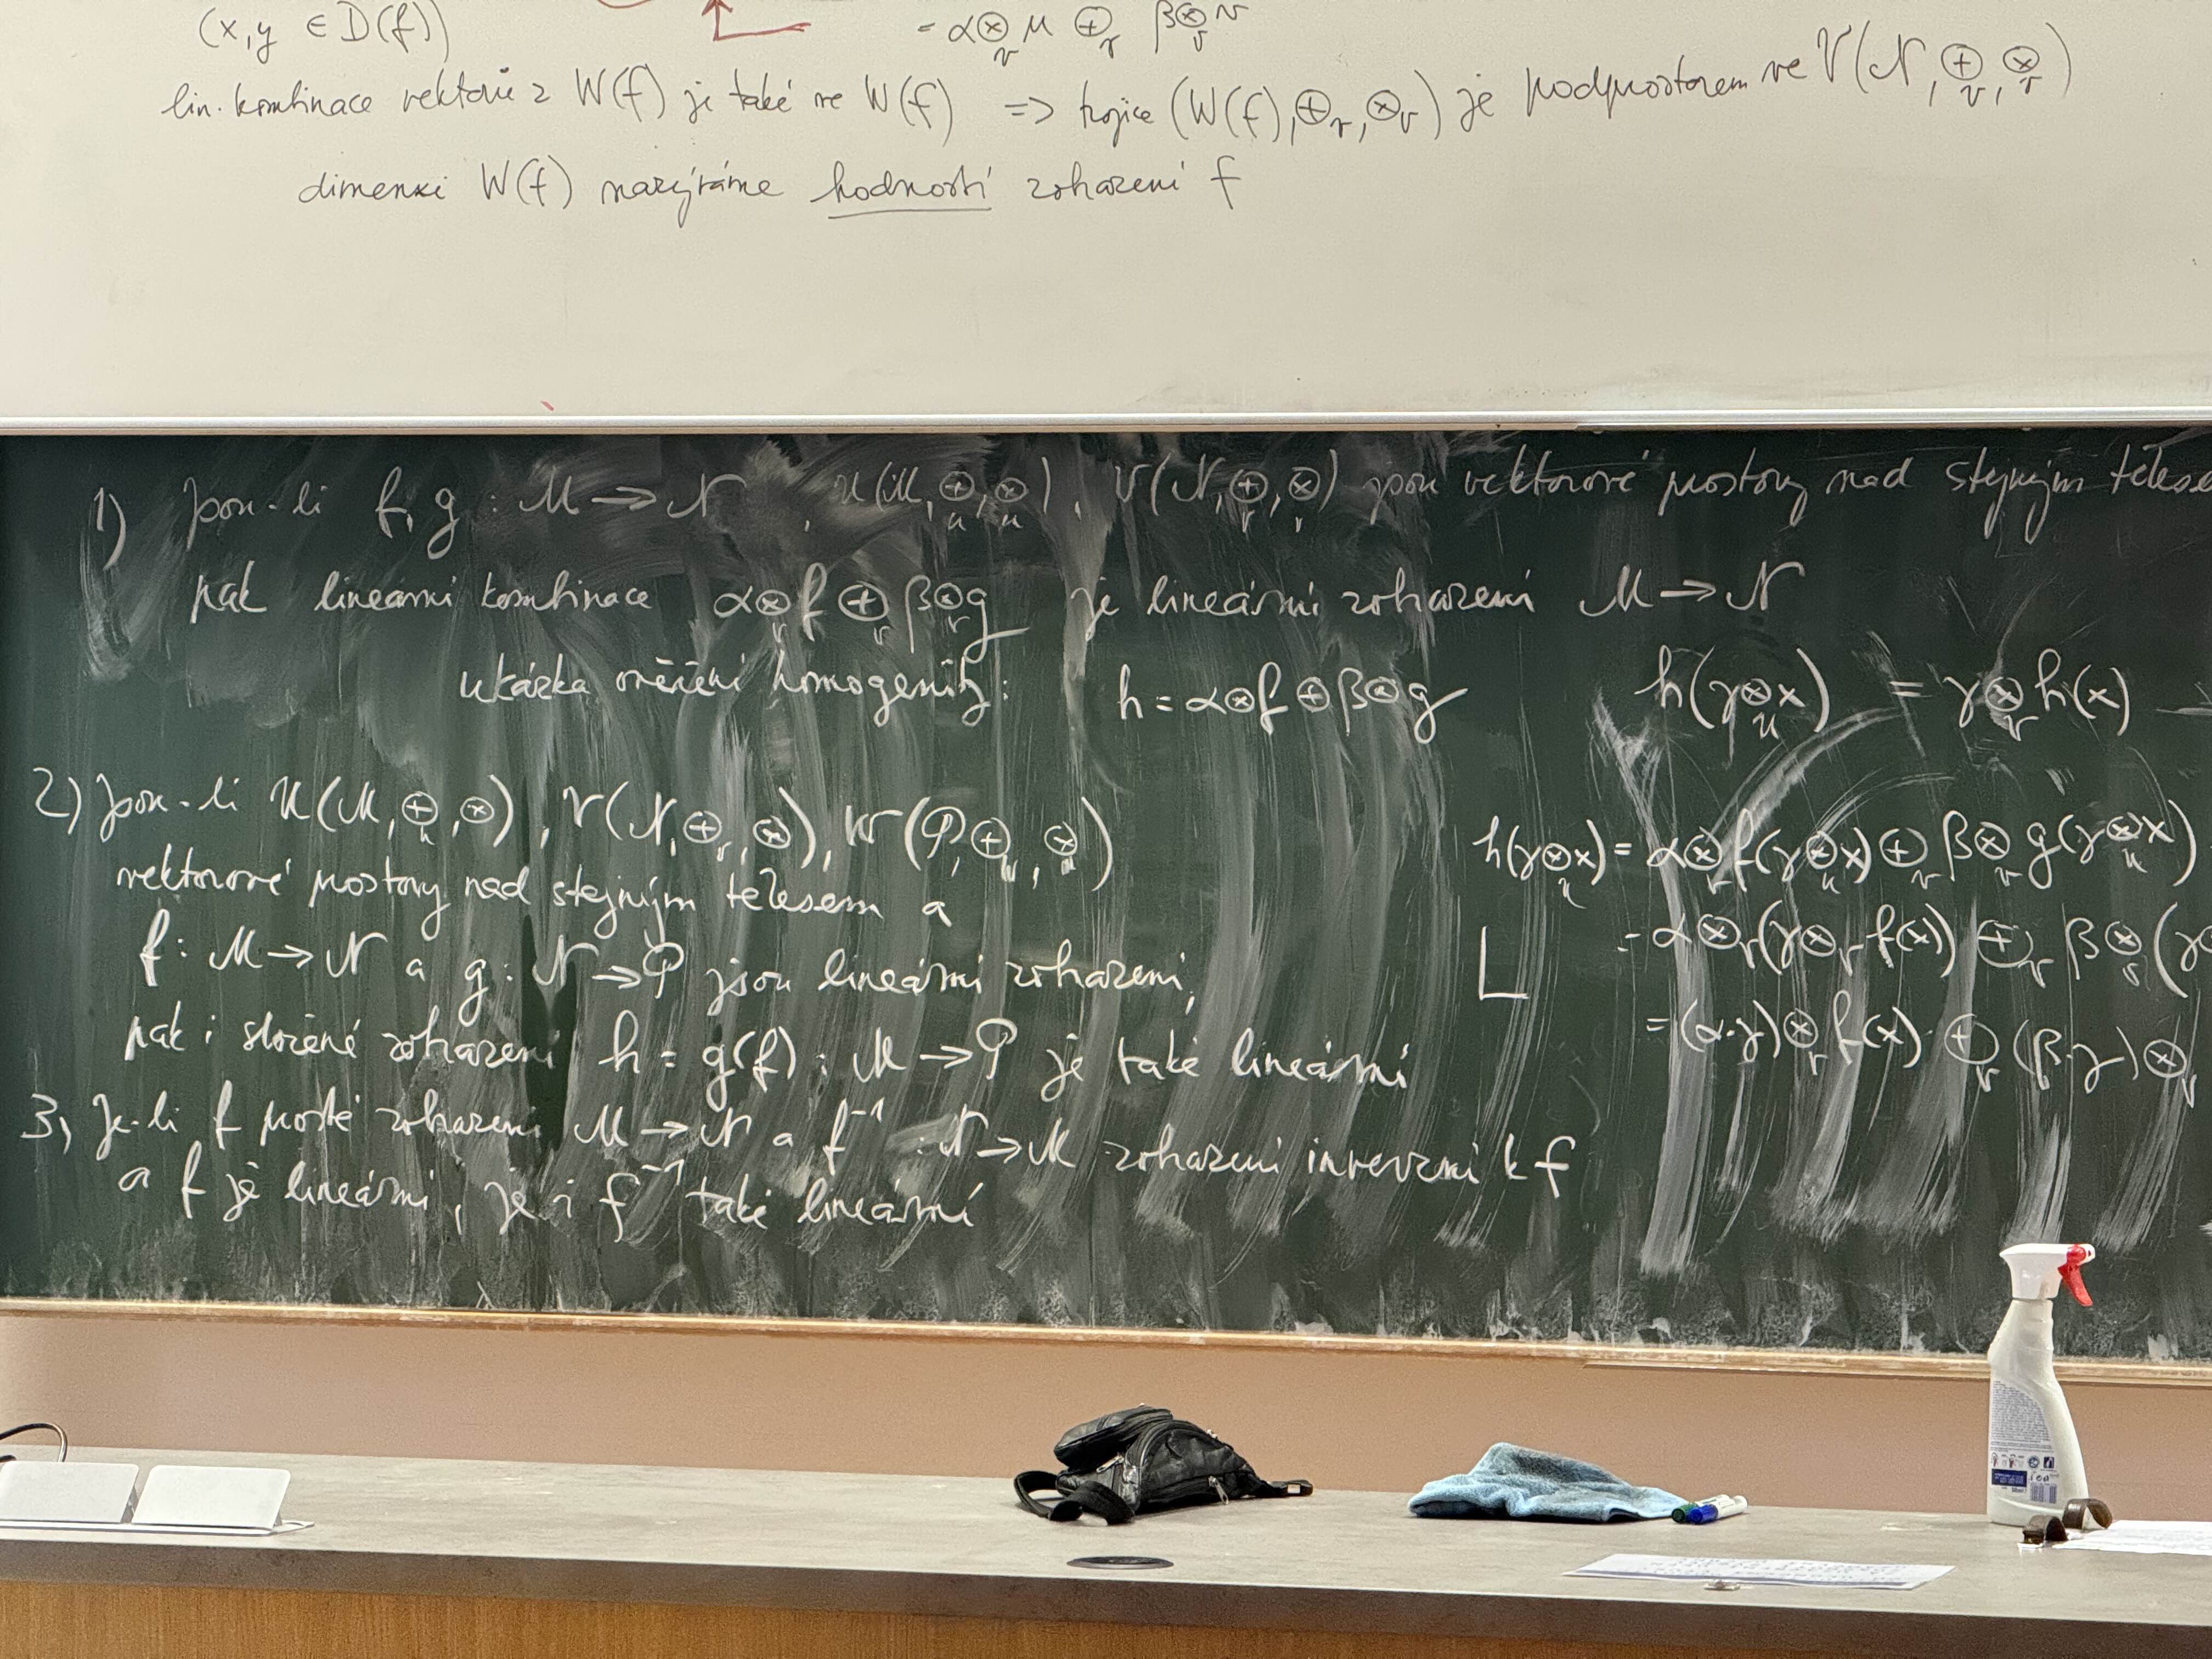 (x,y ∈ D(f))
= α⊗_v u ⊕_v β⊗_v v
lin. kombinace vektorů z W(f) je také ve W(f) => trojice (W(f),⊕_v,⊗_v) je podprostorem ve V(N,⊕_v,⊗_v)
dimenzi W(f) nazýváme hodností zobrazení f
1) Jsou-li f,g : M → N , U(M,⊕_u,⊗_u), V(N,⊕_v,⊗_v) jsou vektorové prostory nad stejným těles
pak lineární kombinace α⊗_v f ⊕_v β⊗_v g je lineární zobrazení M → N
ukázka ověření homogenity: h = α⊗f ⊕ β⊗g h(γ⊗_u x) = γ⊗_v h(x)
2) Jsou-li U(M,⊕_u,⊗), V(N,⊕_v,⊗), W(P,⊕_w,⊗_w)
vektorové prostory nad stejným tělesem a
f: M → N a g: N → P jsou lineární zobrazení,
pak i složené zobrazení h = g(f) : M → P je také lineární
3) Je-li f prosté zobrazení M → N a f⁻¹ : N → M zobrazení inverzní k f
a f je lineární, je i f⁻¹ také lineární
h(γ⊗_u x) = α⊗_v f(γ⊗_u x) ⊕_v β⊗_v g(γ⊗_u x)
L = α⊗_v(γ⊗_v f(x)) ⊕_v β⊗_v (γ
= (α·γ)⊗_v f(x) ⊕_v (β·γ)⊗_v